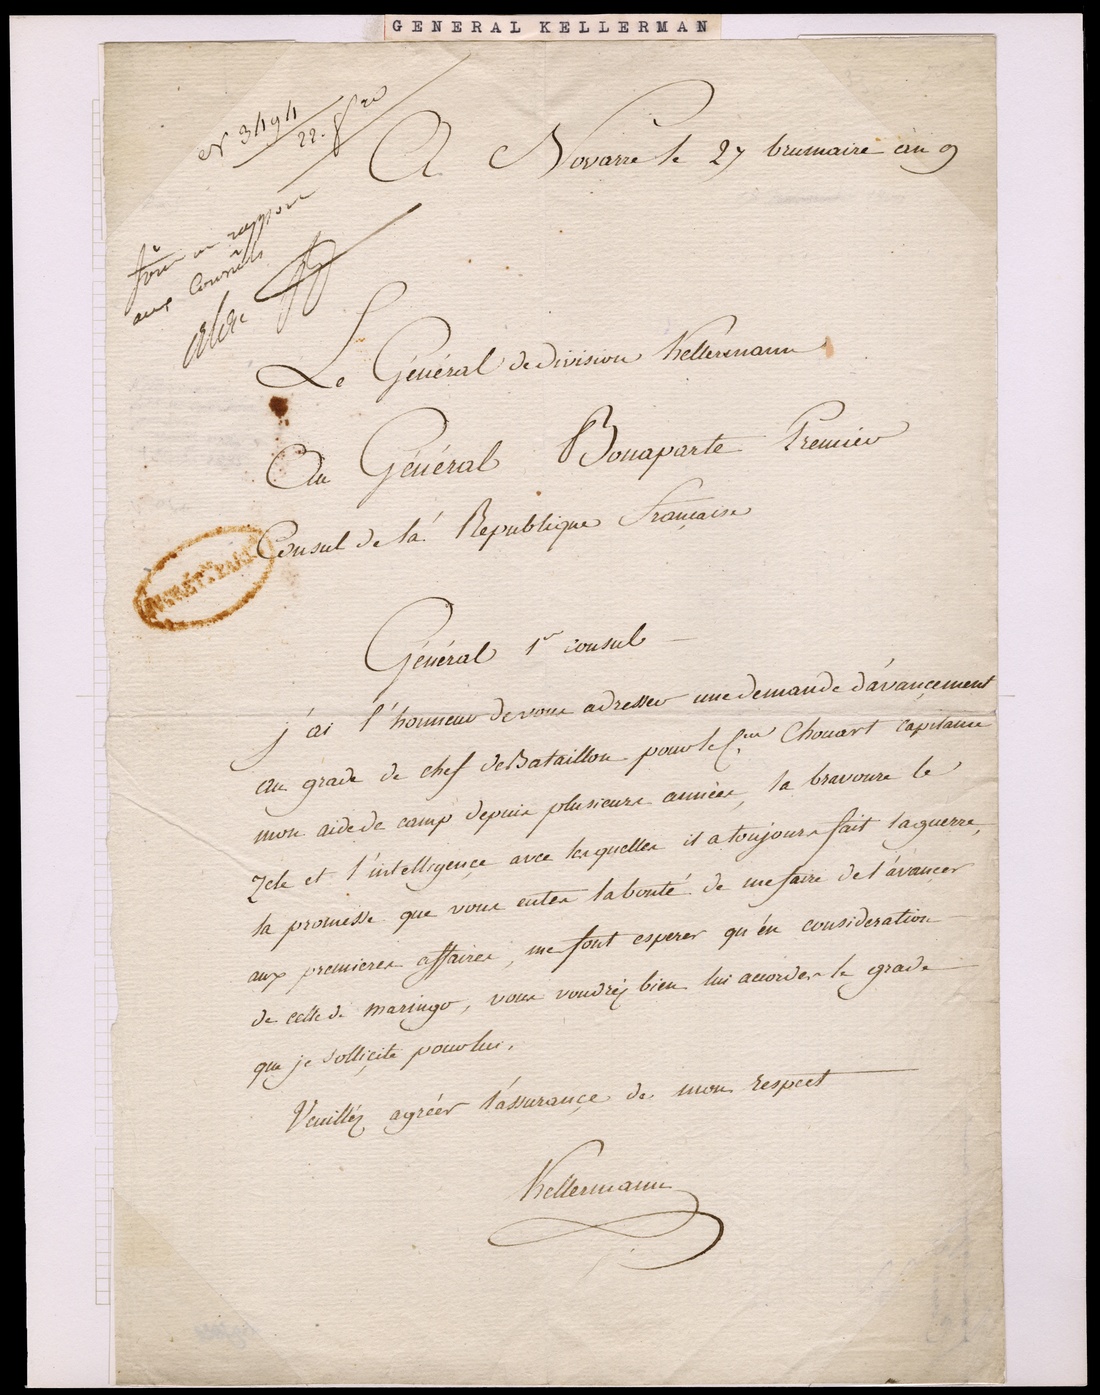 GENERAL KELLERMAN
N° 3494
22.
A Novarre le 27 brumaire an 9
faire un rapport
aux Consuls
Le Général de division Kellermann
Au Général Bonaparte Premier
Consul de la République Française
Général 1er consul
j'ai l'honneur de vous adresser une demande d'avançement
au grade de chef de Bataillon pour le Cen Chouart capitaine
mon aide de camp depuis plusieurs années, la bravoure le
Zele et l'intelligençe avec lesquelles il a toujours fait la guerre,
la promesse que vous eutes la bonté de me faire de l'avancer
aux premieres affaires, me font esperer qu'én consideration
de celle de maringo, vous voudréz bien lui accorder le grade
que je solliçite pour lui.
Veuilléz agréer l'assurançe de mon respect
Kellermann